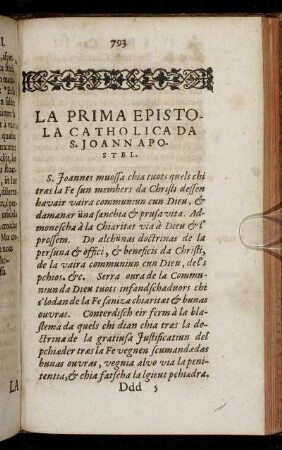 793
LA PRIMA EPISTO-
LA CATHOLICA DA
S. JOANN APO-
STEL.
S. Joannes muossa chia tuots quels chi
tras la Fe sun members da Christi dessen
havair vaira communiun cun Dieu, &
damanar üna sanchia & prusa vita. Ad-
monescha à la Chiaritat via à Dieu & l'
prossem. Do alchünas doctrinas de la
persuna & offici, & beneficis da Christi,
de la vaira communiun cun Dieu, dels
pchios. &c. Serra oura de la Commu-
niun da Dieu tuots infandschaduors chi
s'lodan de la Fe sainza chiaritat & bunas
ouvras. Conterdisch eir ferm à la bla-
stema da quels chi dian chia tras la do-
ctrina de la gratiusa Justificatiun del
pchiader tras la Fe vegnen scumandadas
bunas ouvras, vegnia alvo via la peni-
tentia, & chia fatscha la lgieut pchiadra.
Ddd 5
LA